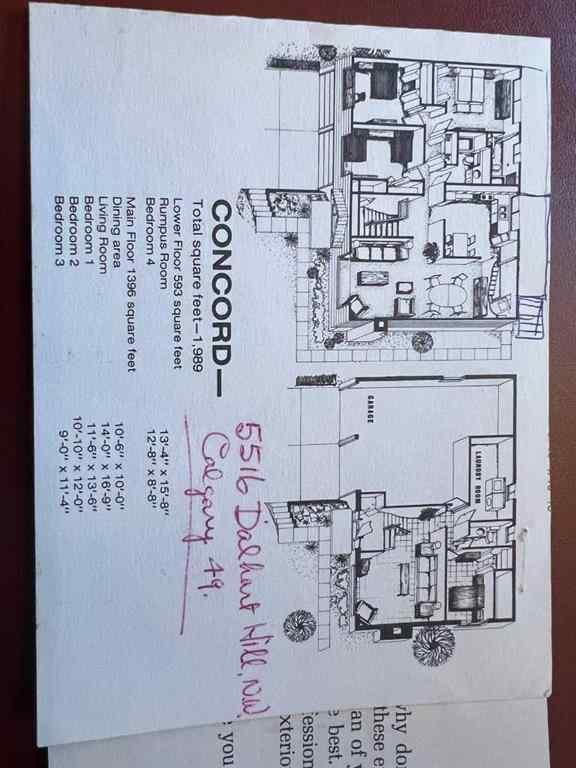 CONCORD—
Total square feet—1,989
Lower Floor 593 square feet
Rumpus Room 13'-4" x 15'-8"
Bedroom 4 12'-8" x 8'-8"
Main Floor 1396 square feet
Dining area 10'-6" x 10'-0"
Living Room 14'-0" x 16'-9"
Bedroom 1 11'-6" x 13'-6"
Bedroom 2 10'-10" x 12'-0"
Bedroom 3 9'-0" x 11'-4"
5516 Dalhart Hill, N.W.
Calgary 49.
GARAGE
LAUNDRY ROOM
why do
these e
an of y
e best.
ession
xterio
you